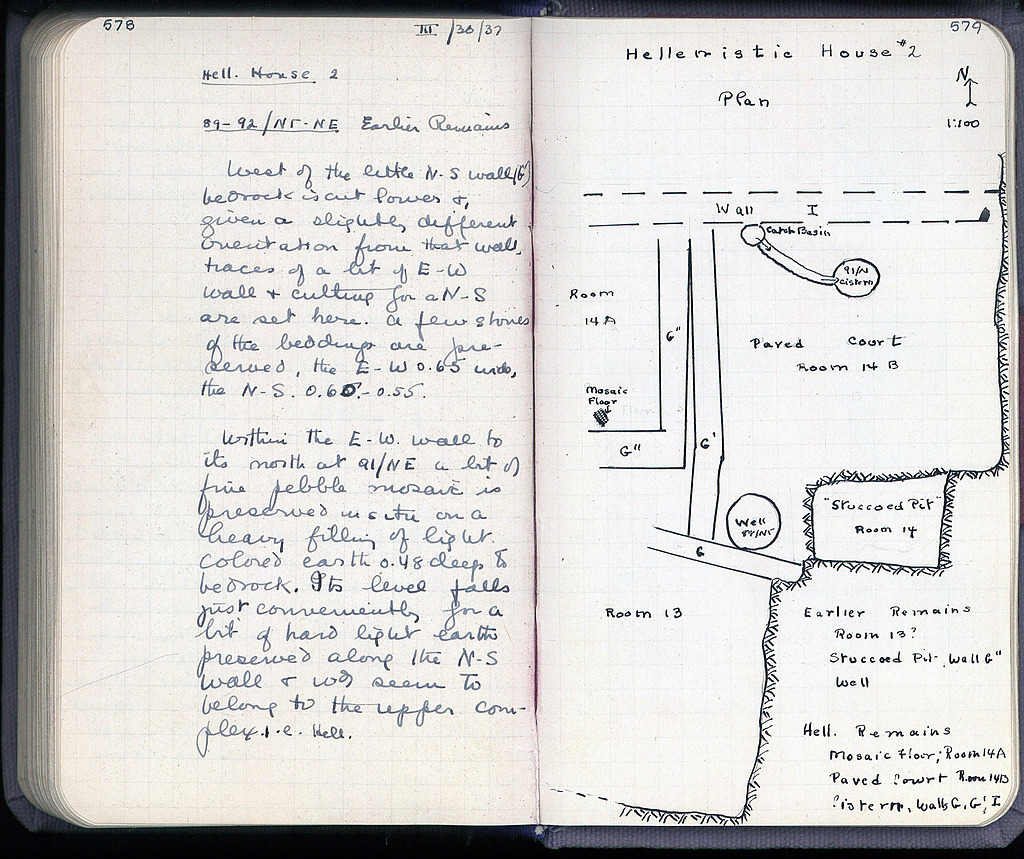 578
III /30/37
Hell. House 2
89-92/ΝΣΤ-ΝΕ Earlier Remains
West of the little N-S wall (G')
bedrock is cut lower &
given a slightly different
orientation from that wall,
traces of a bit of E-W
wall & cutting for a N-S
are set here. A few stones
of the beddings are pre-
served, the E-W 0.65 wide,
the N-S. 0.60-0.55.
Within the E-W. wall to
its north at 91/NE a bit of
fine pebble mosaic is
preserved in situ on a
heavy filling of light
colored earth 0.48 deep to
bedrock. Its level falls
just conveniently for a
bit of hard light earth
preserved along the N-S
wall & wd seem to
belong to the upper com-
plex. i.e. Hell.
579
Hellenistic House #2
Plan
N
1:100
Wall I
Catch Basin
91/N
cistern
Room
14 A
G"
Paved Court
Room 14 B
Mosaic
Floor
G"
G'
"Stuccoed Pit"
Room 14
Well
G
Room 13
Earlier Remains
Room 13?
Stuccoed Pit, Wall G"
Well
Hell. Remains
Mosaic Floor; Room 14A
Paved Court Room 14B
Cistern, Walls G, G', I